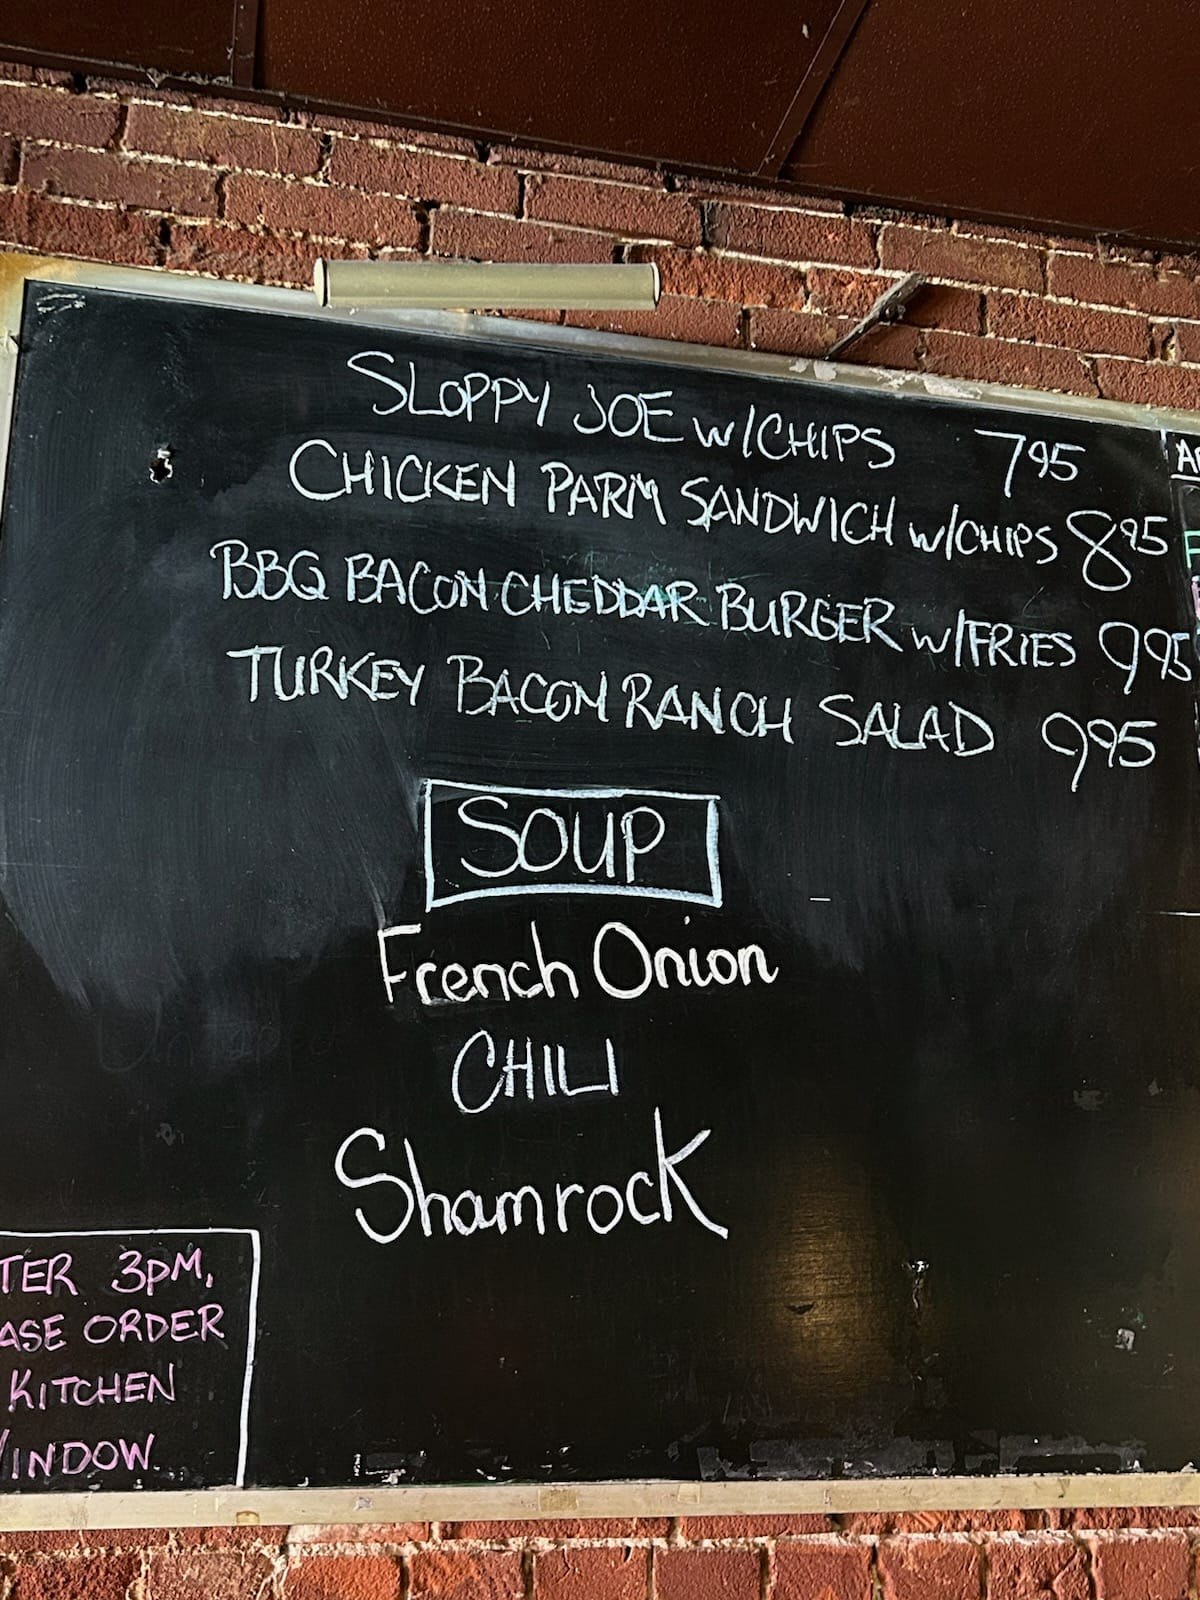 SLOPPY JOE W/CHIPS 7.95
CHICKEN PARM SANDWICH W/CHIPS 8.95
BBQ BACON CHEDDAR BURGER W/FRIES 9.95
TURKEY BACON RANCH SALAD 9.95
SOUP
French Onion
CHILI
Shamrock
TER 3PM,
ASE ORDER
KITCHEN
WINDOW.